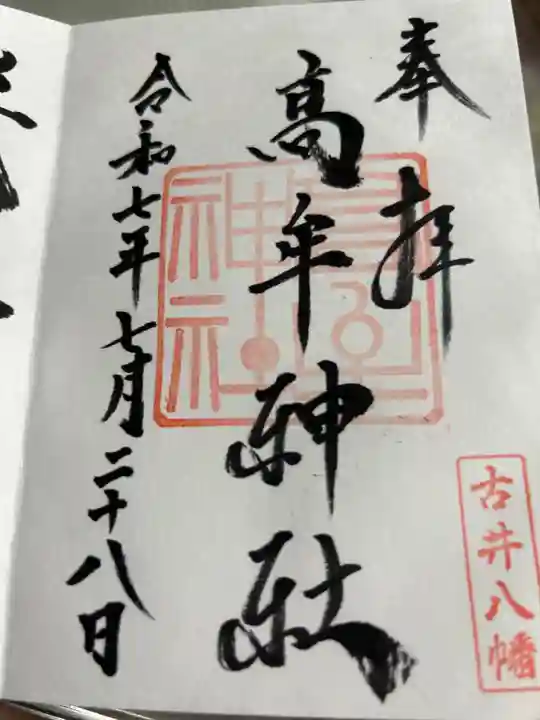 奉拝
高牟神社
古井八幡
令和七年七月二十八日